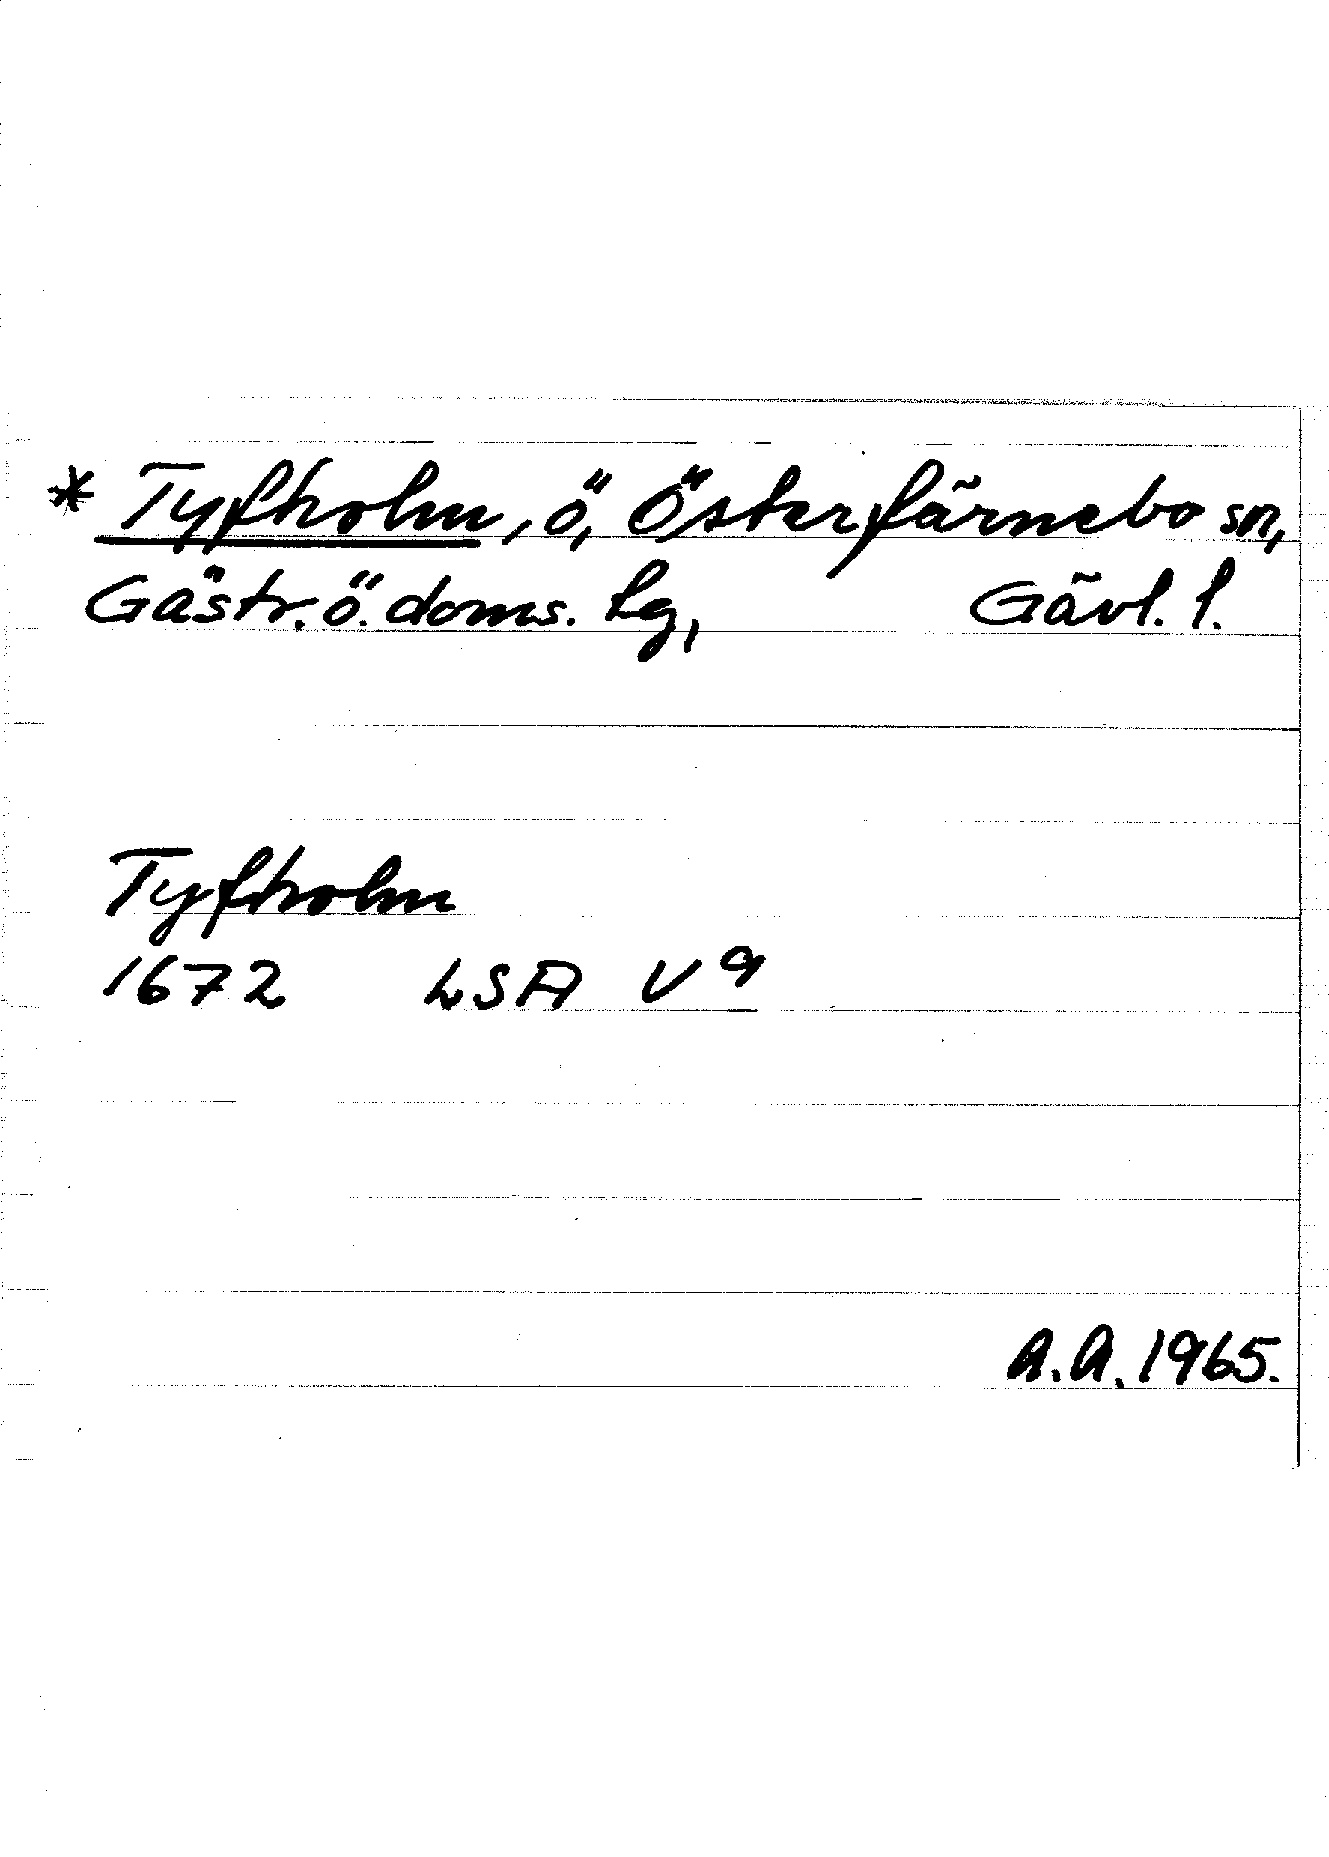 * Tyfholm, ö, Österfärnebo sn,
Gästr. ö. doms. lg, Gävl. l.
Tyfholm
1672 LSA V 9
A.A. 1965.